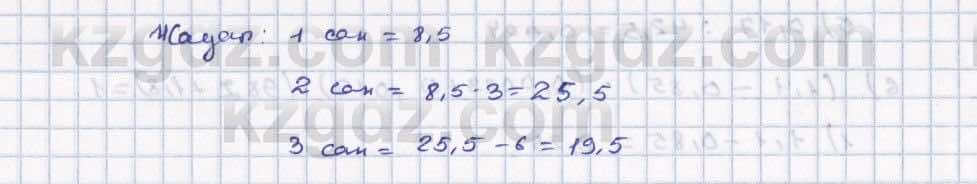 Жауап: 1 сан = 8,5
2 сан = 8,5 · 3 = 25,5
3 сан = 25,5 - 6 = 19,5
kzgdz.com
kzgdz.com